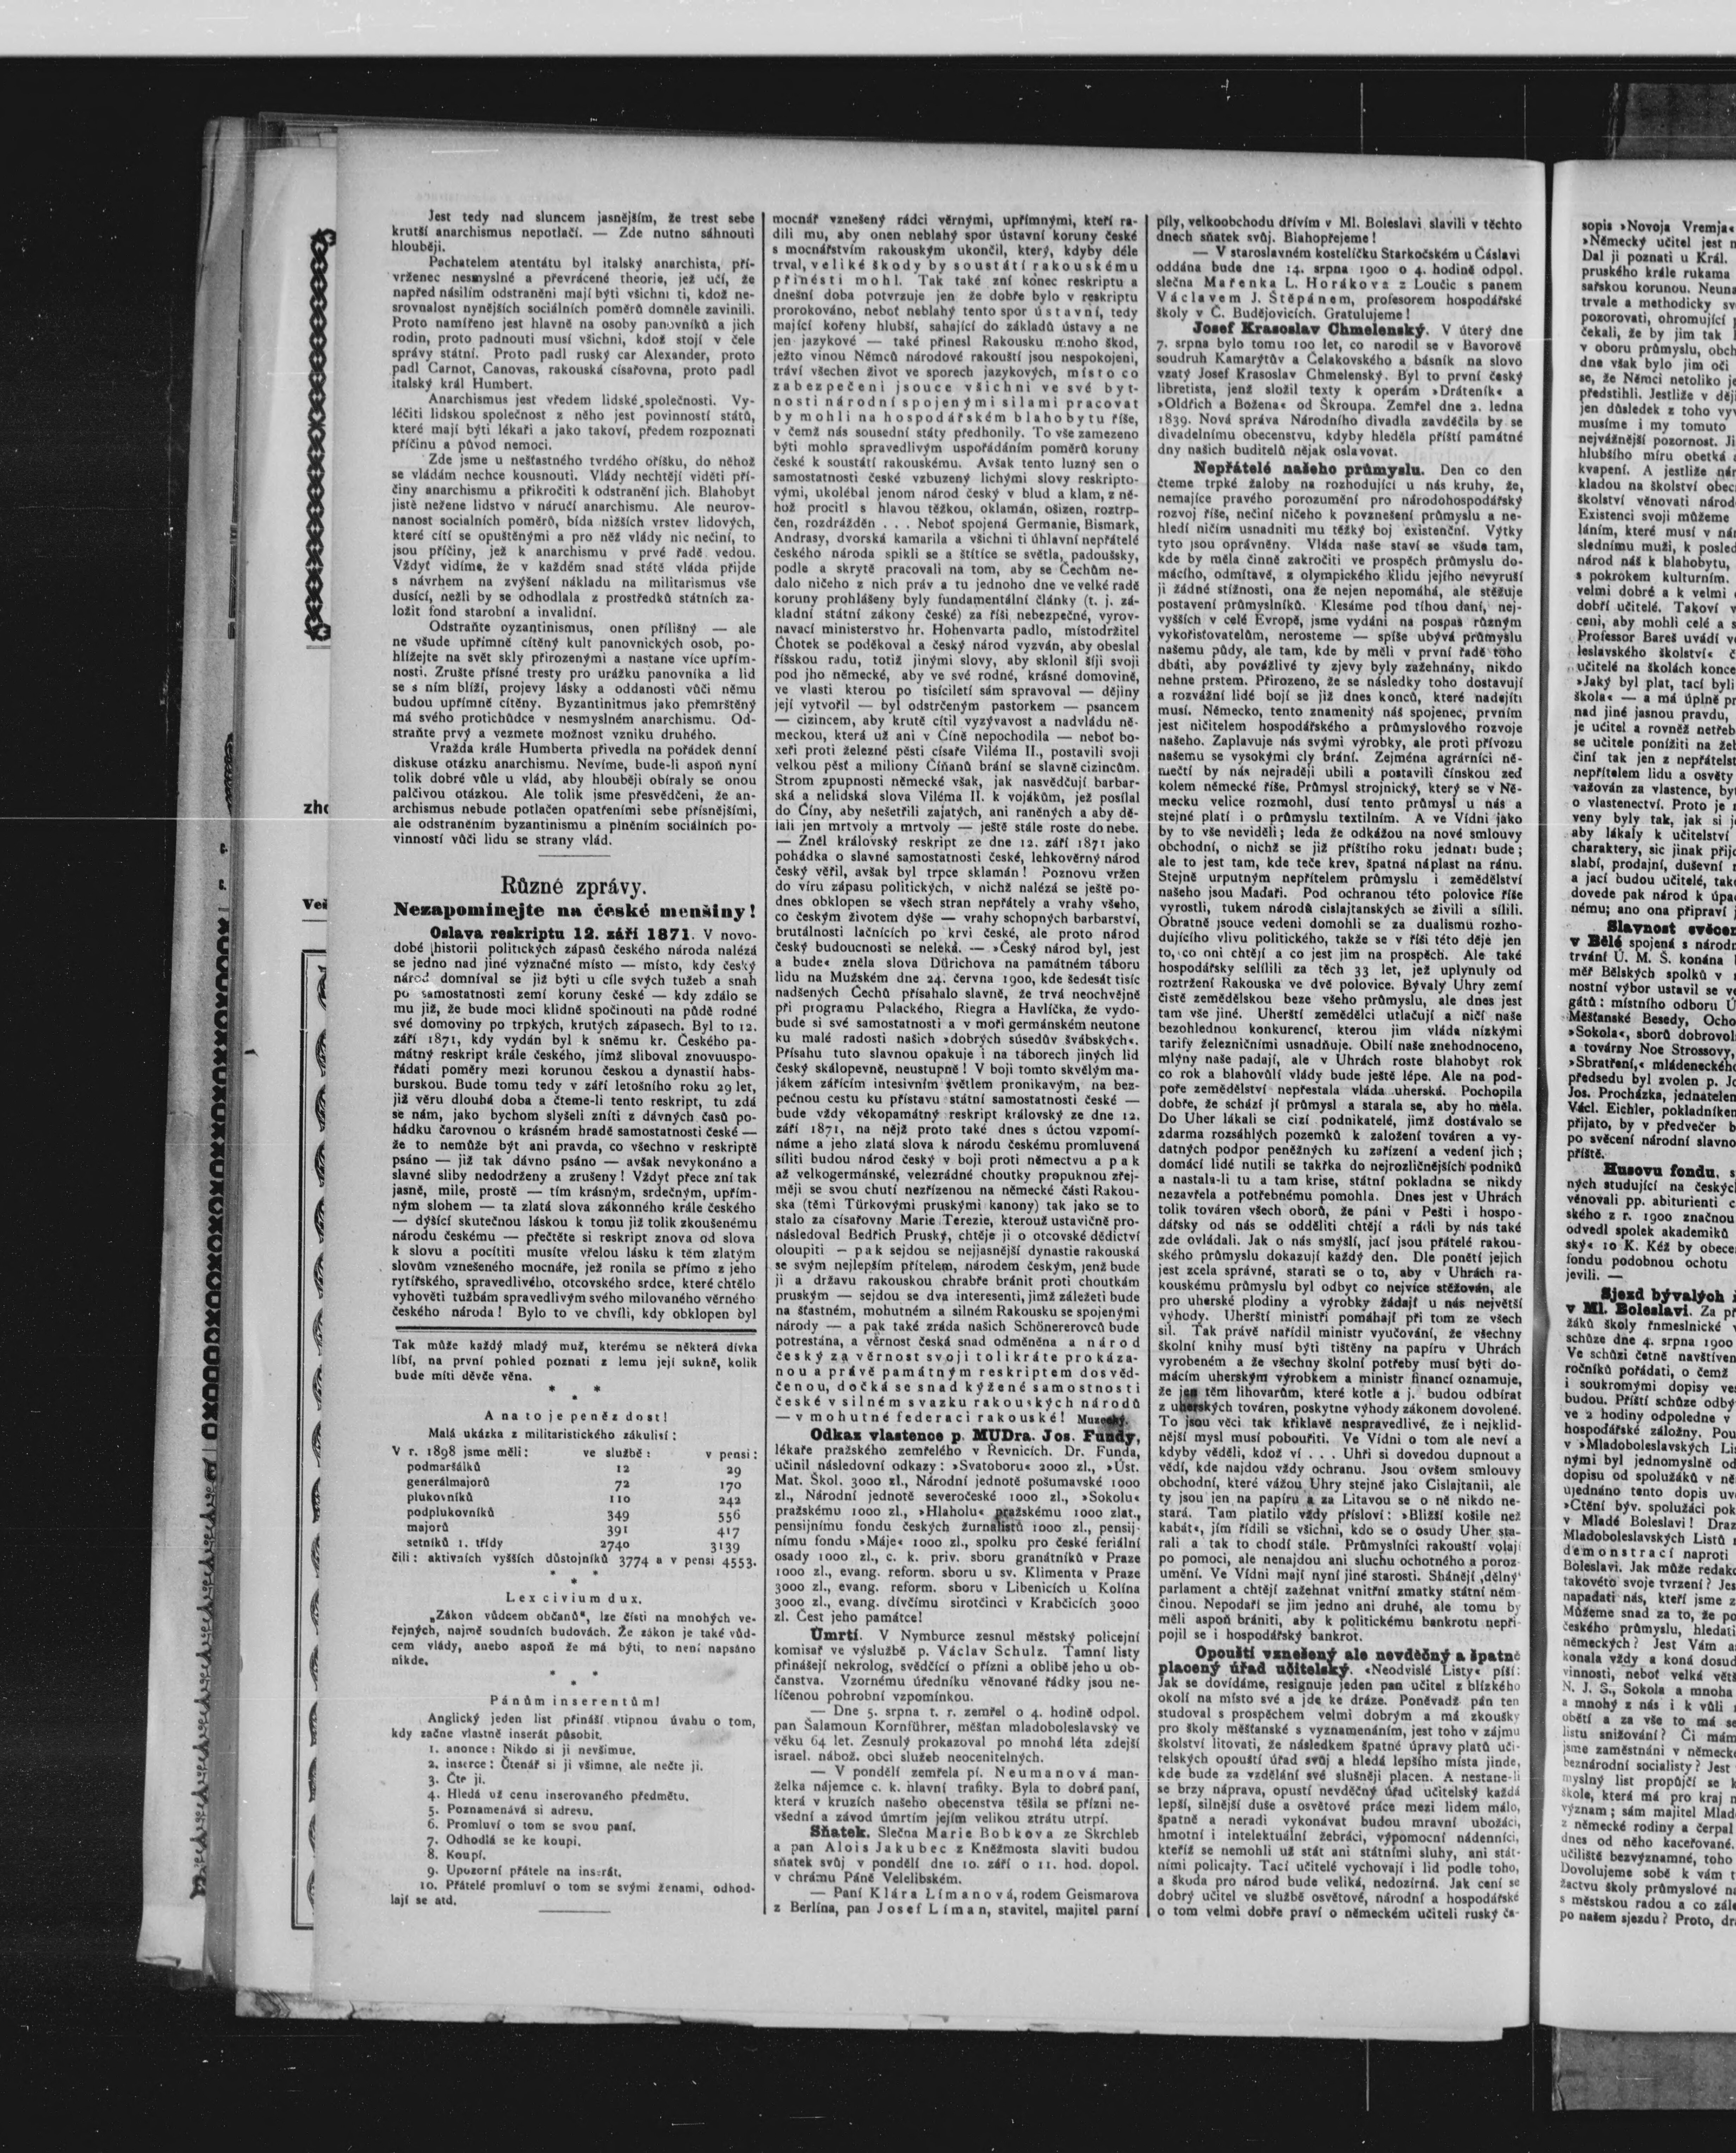 Jest tedy nad sluncem jasnějším, že trest sebe
krutší anarchismus nepotlačí. — Zde nutno sáhnouti
hlouběji.
Pachatelem atentátu byl italský anarchista, pří-
vrženec nesmyslné a převrácené theorie, jež učí, že
napřed násilím odstraněni mají býti všichni ti, kdož ne-
srovnalost nynějších sociálních poměrů domněle zavinili.
Proto namířeno jest hlavně na osoby panovníků a jich
rodin, proto padnouti musí všichni, kdož stojí v čele
správy státní. Proto padl ruský car Alexander, proto
padl Carnot, Canovas, rakouská císařovna, proto padl
italský král Humbert.
Anarchismus jest vředem lidské společnosti. Vy-
léčiti lidskou společnost z něho jest povinností států,
které mají býti lékaři a jako takoví, předem rozpoznati
příčinu a původ nemoci.
Zde jsme u nešťastného tvrdého oříšku, do něhož
se vládám nechce kousnouti. Vlády nechtějí viděti pří-
činy anarchismu a přikročiti k odstranění jich. Blahobyt
jistě nežene lidstvo v náručí anarchismu. Ale neurov-
nanost socialních poměrů, bída nižších vrstev lidových,
které cítí se opuštěnými a pro něž vlády nic nečiní, to
jsou příčiny, jež k anarchismu v prvé řadě vedou.
Vždyť vidíme, že v každém snad státě vláda přijde
s návrhem na zvýšení nákladu na militarismus vše
dusící, nežli by se odhodlala z prostředků státních za-
ložit fond starobní a invalidní.
Odstraňte oyzantinismus, onen přílišný — ale
ne všude upřímně cítěný kult panovnických osob, po-
hlížejte na svět skly přirozenými a nastane více upřím-
nosti. Zrušte přísné tresty pro urážku panovníka a lid
se s ním blíží, projevy lásky a oddanosti vůči němu
budou upřímně cítěny. Byzantinitmus jako přemrštěný
má svého protichůdce v nesmyslném anarchismu. Od-
straňte prvý a vezmete možnost vzniku druhého.
Vražda krále Humberta přivedla na pořádek denní
diskuse otázku anarchismu. Nevíme, bude-li aspoň nyní
tolik dobré vůle u vlád, aby hlouběji obíraly se onou
palčivou otázkou. Ale tolik jsme přesvědčeni, že an-
archismus nebude potlačen opatřeními sebe přísnějšími,
ale odstraněním byzantinismu a plněním sociálních po-
vinností vůči lidu se strany vlád.
Různé zprávy.
Nezapomínejte na české menšiny!
Oslava reskriptu 12. září 1871. V novo-
dobé historii politických zápasů českého národa nalézá
se jedno nad jiné význačné místo — místo, kdy český
národ domníval se již býti u cíle svých tužeb a snah
po samostatnosti zemí koruny české — kdy zdálo se
mu již, že bude moci klidně spočinouti na půdě rodné
své domoviny po trpkých, krutých zápasech. Byl to 12.
září 1871, kdy vydán byl k sněmu kr. Českého pa-
mátný reskript krále českého, jímž sliboval znovuuspo-
řádati poměry mezi korunou českou a dynastií habs-
burskou. Bude tomu tedy v září letošního roku 29 let,
již věru dlouhá doba a čteme-li tento reskript, tu zdá
se nám, jako bychom slyšeli zníti z dávných časů po-
hádku čarovnou o krásném hradě samostatnosti české —
že to nemůže být ani pravda, co všechno v reskriptě
psáno — již tak dávno psáno — avšak nevykonáno a
slavné sliby nedodrženy a zrušeny! Vždyť přece zní tak
jasně, mile, prostě — tím krásným, srdečným, upřím-
ným slohem — ta zlatá slova zákonného krále českého
— dýšící skutečnou láskou k tomu již tolik zkoušenému
národu českému — přečtěte si reskript znova od slova
k slovu a pocítiti musíte vřelou lásku k těm zlatým
slovům vznešeného mocnáře, jež ronila se přímo z jeho
rytířského, spravedlivého, otcovského srdce, které chtělo
vyhověti tužbám spravedlivým svého milovaného věrného
českého národa! Bylo to ve chvíli, kdy obklopen byl
Tak může každý mladý muž, kterému se některá dívka
líbí, na první pohled poznati z lemu její sukně, kolik
bude míti děvče věna.
* *
*
A na to je peněz dost!
Malá ukázka z militaristického zákulisí:
V r. 1898 jsme měli: ve službě: v pensi:
podmaršálků 12 29
generálmajorů 72 170
plukovníků 110 242
podplukovníků 349 556
majorů 391 417
setníků 1. třídy 2740 3139
čili: aktivních vyšších důstojníků 3774 a v pensi 4553.
* *
*
Lex civium dux.
„Zákon vůdcem občanů“, lze čísti na mnohých ve-
řejných, najmě soudních budovách. Že zákon je také vůd-
cem vlády, anebo aspoň že má býti, to není napsáno
nikde.
* *
*
Pánům inserentům!
Anglický jeden list přináší vtipnou úvahu o tom,
kdy začne vlastně inserát působit.
1. anonce: Nikdo si jí nevšimne.
2. inserce: Čtenář si jí všimne, ale nečte ji.
3. Čte ji.
4. Hledá už cenu inserovaného předmětu.
5. Poznamenává si adresu.
6. Promluví o tom se svou paní.
7. Odhodlá se ke koupi.
8. Koupí.
9. Upozorní přátele na inserát.
10. Přátelé promluví o tom se svými ženami, odhod-
lají se atd.
mocnář vznešený rádci věrnými, upřímnými, kteří ra-
dili mu, aby onen neblahý spor ústavní koruny české
s mocnářstvím rakouským ukončil, který, kdyby déle
trval, veliké škody by soustátí rakouskému
přinésti mohl. Tak také zní konec reskriptu a
dnešní doba potvrzuje jen že dobře bylo v reskriptu
prorokováno, neboť neblahý tento spor ústavní, tedy
mající kořeny hlubší, sahající do základů ústavy a ne
jen jazykové — také přinesl Rakousku mnoho škod,
ježto vinou Němců národové rakouští jsou nespokojeni,
tráví všechen život ve sporech jazykových, místo co
zabezpečeni jsouce všichni ve své byt-
nosti národní spojenými silami pracovat
by mohli na hospodářském blahobytu říše,
v čemž nás sousední státy předhonily. To vše zamezeno
býti mohlo spravedlivým uspořádáním poměrů koruny
české k soustátí rakouskému. Avšak tento luzný sen o
samostatnosti české vzbuzený lichými slovy reskripto-
vými, ukolébal jenom národ český v blud a klam, z ně-
hož procitl s hlavou těžkou, oklamán, ošizen, roztrp-
čen, rozdrážděn . . . Neboť spojená Germanie, Bismark,
Andrasy, dvorská kamarila a všichni ti úhlavní nepřátelé
českého národa spikli se a štítíce se světla, padoušsky,
podle a skrytě pracovali na tom, aby se Čechům ne-
dalo ničeho z nich práv a tu jednoho dne ve velké radě
koruny prohlášeny byly fundamentální články (t. j. zá-
kladní státní zákony české) za říši nebezpečné, vyrov-
navací ministerstvo hr. Hohenvarta padlo, místodržitel
Chotek se poděkoval a český národ vyzván, aby obeslal
říšskou radu, totiž jinými slovy, aby sklonil šíji svoji
pod jho německé, aby ve své rodné, krásné domovině,
ve vlasti kterou po tisíciletí sám spravoval — dějiny
její vytvořil — byl odstrčeným pastorkem — psancem
— cizincem, aby krutě cítil vyzývavost a nadvládu ně-
meckou, která už ani v Číně nepochodila — neboť bo-
xeři proti železné pěsti císaře Viléma II., postavili svoji
velkou pěsť a miliony Číňanů brání se slavně cizincům.
Strom zpupnosti německé však, jak nasvědčují barbar-
ská a nelidská slova Viléma II. k vojákům, jež posílal
do Číny, aby nešetřili zajatých, ani raněných a aby dě-
lali jen mrtvoly a mrtvoly — ještě stále roste do nebe.
— Zněl královský reskript ze dne 12. září 1871 jako
pohádka o slavné samostatnosti české, lehkověrný národ
český věřil, avšak byl trpce sklamán! Poznovu vržen
do víru zápasu politických, v nichž nalézá se ještě po-
dnes obklopen se všech stran nepřátely a vrahy všeho,
co českým životem dýše — vrahy schopných barbarství,
brutálnosti lačnících po krvi české, ale proto národ
český budoucnosti se neleká. — »Český národ byl, jest
a bude« zněla slova Dürichova na památném táboru
lidu na Mužském dne 24. června 1900, kde šedesát tisíc
nadšených Čechů přísahalo slavně, že trvá neochvějně
při programu Palackého, Riegra a Havlíčka, že vydo-
bude si své samostatnosti a v moři germánském neutone
ku malé radosti našich »dobrých súsedův švábských«.
Přísahu tuto slavnou opakuje i na táborech jiných lid
český skálopevně, neustupně! V boji tomto skvělým ma-
jákem zářícím intesivním světlem pronikavým, na bez-
pečnou cestu ku přístavu státní samostatnosti české —
bude vždy věkopamátný reskript královský ze dne 12.
září 1871, na nějž proto také dnes s úctou vzpomí-
náme a jeho zlatá slova k národu českému promluvená
síliti budou národ český v boji proti němectvu a pak
až velkogermánské, velezrádné choutky propuknou zřej-
měji se svou chutí nezřízenou na německé části Rakou-
ska (těmi Türkovými pruskými kanony) tak jako se to
stalo za císařovny Marie Terezie, kterouž ustavičně pro-
následoval Bedřich Pruský, chtěje ji o otcovské dědictví
oloupiti — pak sejdou se nejjasnější dynastie rakouská
se svým nejlepším přítelem, národem českým, jenž bude
ji a državu rakouskou chrabře bránit proti choutkám
pruským — sejdou se dva interesenti, jimž záležeti bude
na šťastném, mohutném a silném Rakousku se spojenými
národy — a pak také zráda našich Schönererovců bude
potrestána, a věrnost česká snad odměněna a národ
český za věrnost svoji tolikráte prokáza-
nou a právě památným reskriptem dosvěd-
čenou, dočká se snad kýžené samostnosti
české v silném svazku rakouských národů
— v mohutné federaci rakouské! Muzecký.
Odkaz vlastence p. MUDra. Jos. Fundy,
lékaře pražského zemřelého v Řevnicích. Dr. Funda,
učinil následovní odkazy: »Svatoboru« 2000 zl., »Úst.
Mat. Škol. 3000 zl., Národní jednotě pošumavské 1000
zl., Národní jednotě severočeské 1000 zl., »Sokolu«
pražskému 1000 zl., »Hlaholu« pražskému 1000 zlat.,
pensijnímu fondu českých žurnalistů 1000 zl., pensij-
nímu fondu »Máje« 1000 zl., spolku pro české feriální
osady 1000 zl., c. k. priv. sboru granátníků v Praze
1000 zl., evang. reform. sboru u sv. Klimenta v Praze
3000 zl., evang. reform. sboru v Libenicích u Kolína
3000 zl., evang. dívčímu sirotčinci v Krabčicích 3000
zl. Čest jeho památce!
Úmrtí. V Nymburce zesnul městský policejní
komisař ve výslužbě p. Václav Schulz. Tamní listy
přinášejí nekrolog, svědčící o přízni a oblibě jeho u ob-
čanstva. Vzornému úředníku věnované řádky jsou ne-
líčenou pohrobní vzpomínkou.
— Dne 5. srpna t. r. zemřel o 4. hodině odpol.
pan Šalamoun Kornführer, měšťan mladoboleslavský ve
věku 64 let. Zesnulý prokazoval po mnohá léta zdejší
israel. nábož. obci služeb neocenitelných.
— V pondělí zemřela pí. Neumanová man-
želka nájemce c. k. hlavní trafiky. Byla to dobrá paní,
která v kruzích našeho obecenstva těšila se přízni ne-
všední a závod úmrtím jejím velikou ztrátu utrpí.
Sňatek. Slečna Marie Bobkova ze Skrchleb
a pan Alois Jakubec z Kněžmosta slaviti budou
sňatek svůj v pondělí dne 10. září o 11. hod. dopol.
v chrámu Páně Velelibském.
— Paní Klára Límanová, rodem Geismarova
z Berlína, pan Josef Líman, stavitel, majitel parní
pily, velkoobchodu dřívím v Ml. Boleslavi slavili v těchto
dnech sňatek svůj. Blahopřejeme!
— V staroslavném kostelíčku Starkočském u Čáslavi
oddána bude dne 14. srpna 1900 o 4. hodině odpol.
slečna Mařenka L. Horákova z Loučic s panem
Václavem J. Štěpánem, profesorem hospodářské
školy v Č. Budějovicích. Gratulujeme!
Josef Krasoslav Chmelenský. V úterý dne
7. srpna bylo tomu 100 let, co narodil se v Bavorově
soudruh Kamarýtův a Čelakovského a básník na slovo
vzatý Josef Krasoslav Chmelenský. Byl to první český
libretista, jenž složil texty k operám »Dráteník« a
»Oldřich a Božena« od Škroupa. Zemřel dne 2. ledna
1839. Nová správa Národního divadla zavděčila by se
divadelnímu obecenstvu, kdyby hleděla příští památné
dny našich buditelů nějak oslavovat.
Nepřátelé našeho průmyslu. Den co den
čteme trpké žaloby na rozhodující u nás kruhy, že,
nemajíce pravého porozumění pro národohospodářský
rozvoj říše, nečiní ničeho k povznešení průmyslu a ne-
hledí ničím usnadniti mu těžký boj existenční. Výtky
tyto jsou oprávněny. Vláda naše staví se všude tam,
kde by měla činně zakročiti ve prospěch průmyslu do-
mácího, odmítavě, z olympického klidu jejího nevyruší
ji žádné stížnosti, ona že nejen nepomáhá, ale stěžuje
postavení průmyslníků. Klesáme pod tíhou daní, nej-
vyšších v celé Evropě, jsme vydáni na pospas různým
vykořisťovatelům, nerosteme — spíše ubývá průmyslu
našemu půdy, ale tam, kde by měli v první řadě toho
dbáti, aby povážlivé ty zjevy byly zažehnány, nikdo
nehne prstem. Přirozeno, že se následky toho dostavují
a rozvážní lidé bojí se již dnes konců, které nadejíti
musí. Německo, tento znamenitý náš spojenec, prvním
jest ničitelem hospodářského a průmyslového rozvoje
našeho. Zaplavuje nás svými výrobky, ale proti přívozu
našemu se vysokými cly brání. Zejména agrárníci ně-
mečtí by nás nejraději ubili a postavili čínskou zeď
kolem německé říše. Průmysl strojnický, který se v Ně-
mecku velice rozmohl, dusí tento průmysl u nás a
stejně platí i o průmyslu textilním. A ve Vídni jako
by to vše neviděli; leda že odkážou na nové smlouvy
obchodní, o nichž se již příštího roku jednati bude;
ale to jest tam, kde teče krev, špatná náplast na ránu.
Stejně urputným nepřítelem průmyslu i zemědělství
našeho jsou Maďaři. Pod ochranou této polovice říše
vyrostli, tukem národů cislajtanských se živili a sílili.
Obratně jsouce vedeni domohli se za dualismu rozho-
dujícího vlivu politického, takže se v říši této děje jen
to, co oni chtějí a co jest jim na prospěch. Ale také
hospodářsky selílili za těch 33 let, jež uplynuly od
roztržení Rakouska ve dvě polovice. Bývaly Uhry zemí
čistě zemědělskou beze všeho průmyslu, ale dnes jest
tam vše jiné. Uherští zemědělci utlačují a ničí naše
bezohlednou konkurencí, kterou jim vláda nízkými
tarify železničními usnadňuje. Obilí naše znehodnoceno,
mlýny naše padají, ale v Uhrách roste blahobyt rok
co rok a blahovůlí vlády bude ještě lépe. Ale na pod-
poře zemědělství nepřestala vláda uherská. Pochopila
dobře, že schází jí průmysl a starala se, aby ho měla.
Do Uher lákali se cizí podnikatelé, jimž dostávalo se
zdarma rozsáhlých pozemků k založení továren a vy-
datných podpor peněžných ku zařízení a vedení jich;
domácí lidé nutili se takřka do nejrozličnějších podniků
a nastala-li tu a tam krise, státní pokladna se nikdy
nezavřela a potřebnému pomohla. Dnes jest v Uhrách
tolik továren všech oborů, že páni v Pešti i hospo-
dářsky od nás se odděliti chtějí a rádi by nás také
zde ovládali. Jak o nás smýšlí, jací jsou přátelé rakou-
ského průmyslu dokazují každý den. Dle ponětí jejich
jest zcela správné, starati se o to, aby v Uhrách ra-
kouskému průmyslu byl odbyt co nejvíce stěžován, ale
pro uherské plodiny a výrobky žádají u nás největší
výhody. Uherští ministři pomáhají při tom ze všech
sil. Tak právě nařídil ministr vyučování, že všechny
školní knihy musí býti tištěny na papíru v Uhrách
vyrobeném a že všechny školní potřeby musí býti do-
mácím uherským výrobkem a ministr financí oznamuje,
že jen těm lihovarům, které kotle a j. budou odbírat
z uherských továren, poskytne výhody zákonem dovolené.
To jsou věci tak křiklavě nespravedlivé, že i nejklid-
nější mysl musí pobouřiti. Ve Vídni o tom ale neví a
kdyby věděli, kdož ví . . . Uhři si dovedou dupnout a
vědí, kde najdou vždy ochranu. Jsou ovšem smlouvy
obchodní, které vážou Uhry stejně jako Cislajtanii, ale
ty jsou jen na papíru a za Litavou se o ně nikdo ne-
stará. Tam platilo vždy přísloví: »Bližší košile než
kabát«, jím řídili se všichni, kdo se o osudy Uher sta-
rali a tak to chodí stále. Průmyslníci rakouští volají
po pomoci, ale nenajdou ani sluchu ochotného a poroz-
umění. Ve Vídni mají nyní jiné starosti. Shánějí ‚dělný‘
parlament a chtějí zažehnat vnitřní zmatky státní něm-
činou. Nepodaří se jim jedno ani druhé, ale tomu by
měli aspoň brániti, aby k politickému bankrotu nepři-
pojil se i hospodářský bankrot.
Opouští vznešený ale nevděčný a špatně
placený úřad učitelský. «Neodvislé Listy« píší:
Jak se dovídáme, resignuje jeden pan učitel z blízkého
okolí na místo své a jde ke dráze. Poněvadž pán ten
studoval s prospěchem velmi dobrým a má zkoušky
pro školy měšťanské s vyznamenáním, jest toho v zájmu
školství litovati, že následkem špatné úpravy platů uči-
telských opouští úřad svůj a hledá lepšího místa jinde,
kde bude za vzdělání své slušněji placen. A nestane-li
se brzy náprava, opustí nevděčný úřad učitelský každá
lepší, silnější duše a osvětové práce mezi lidem málo,
špatně a neradi vykonávat budou mravní ubožáci,
hmotní i intelektuální žebráci, výpomocní nádenníci,
kteříž se nemohli už stát ani státními sluhy, ani stát-
ními policajty. Tací učitelé vychovají i lid podle toho,
a škoda pro národ bude veliká, nedozírná. Jak cení se
dobrý učitel ve službě osvětové, národní a hospodářské
o tom velmi dobře praví o německém učiteli ruský ča-
sopis »Novoja Vremja«
»Německý učitel jest
Dal ji poznati u Král.
pruského krále rukama
sařskou korunou.
trvale a methodicky
pozorovati, ohromující
čekali, že by jim tak
v oboru průmyslu,
dne však bylo jim oči
se, že Němci netoliko
předstihli. Jestliže v
jen důsledek z toho
musíme i my tomuto
nejvážnější pozornost.
hlubšího míru obetká
kvapení. A jestliže
kladou na školství
školství věnovati
Existenci svoji můžeme
láním, které musí v
slednímu muži, k
národ náš k blahobytu,
s pokrokem kulturním.
velmi dobré a k velmi
dobří učitelé. Takoví
ceni, aby mohli celé a
Professor Bareš uvádí
leslavského školství«
učitelé na školách
»Jaký byl plat, tací byli
škola« — a má úplně
nad jiné jasnou pravdu,
je učitel a rovněž
se učitele ponížiti na
činí tak jen z
nepřítelem lidu a osvěty
važován za vlastence,
o vlastenectví. Proto je
veny byly tak, jak si
aby lákaly k učitelství
charaktery, sic jinak
slabí, prodajní, duševní
a jací budou učitelé,
dovede pak národ k
nému; ano ona připraví
Slavnost
v Bělé spojená s
trvání Ú. M. Š. konána
měř Bělských spolků v
nostní výbor ustavil se
gátů: místního odboru
Měšťanské Besedy,
»Sokola«, sborů
a továrny Noe Strossovy,
»Sbratření,« mládeneckého
předsedu byl zvolen p.
Jos. Procházka,
Václ. Eichler,
přijato, by v předvečer
po svěcení národní
příště.
Husovu fondu,
ných studující na
věnovali pp. abiturienti
ského z r. 1900 značnou
odvedl spolek akademiků
ský« 10 K. Kéž by
fondu podobnou ochotu
jevili. —
Sjezd bývalých
v Ml. Boleslavi. Za
žáků školy řnmeslnické
schůze dne 4. srpna 1900
Ve schůzi četně
ročníků pořádati, o čemž
i soukromými dopisy
budou. Příští schůze
ve 2 hodiny odpoledne v
hospodářské záložny.
v »Mladoboleslavských
nými byl jednomyslně
dopisu od spolužáků v
ujednáno tento dopis
»Ctění býv. spolužáci
v Mladé Boleslavi!
Mladoboleslavských Listů
demonstrací naproti
Boleslavi. Jak může
takovéto svoje tvrzení?
napadati nás, kteří jsme
Můžeme snad za to, že
českého průmyslu, hledati
německých? Jest Vám
konala vždy a koná
vinnosti, neboť velká
N. J. S., Sokola a mnoha
a mnohý z nás i k vůli
obětí a za vše to má
listu snižování? Či
jsme zaměstnáni v
beznárodní socialisty? Jest
myslný list propůjčí se
škole, která má pro kraj
význam; sám majitel
z německé rodiny a čerpal
dnes od něho kaceřované.
učiliště bezvýznamné, toho
Dovolujeme sobě k vám
žactvu školy průmyslové
s městskou radou a co
po našem sjezdu? Proto,